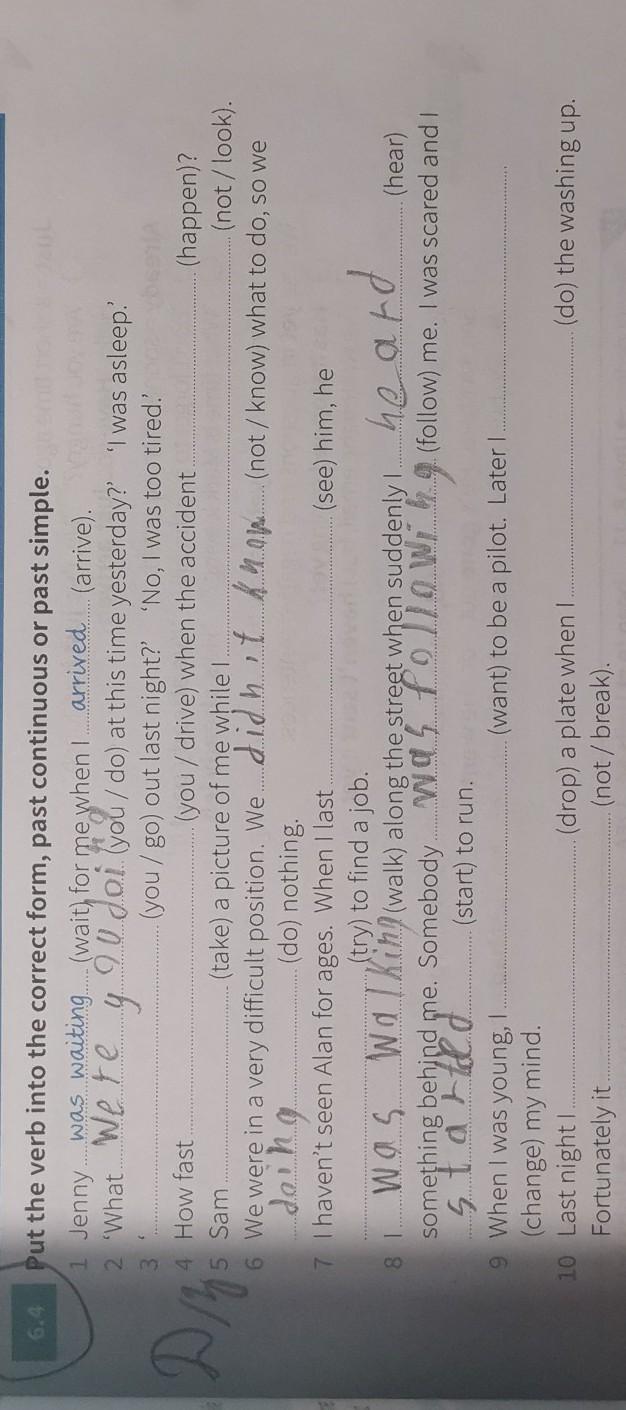 6.4 Put the verb into the correct form, past continuous or past simple.
1 Jenny was waiting (wait) for me when I arrived (arrive).
2 'What were you doing (you / do) at this time yesterday?' 'I was asleep.'
3 ' (you / go) out last night?' 'No, I was too tired.'
4 How fast (you / drive) when the accident (happen)?
5 Sam (take) a picture of me while I (not / look).
6 We were in a very difficult position. We didn't know (not / know) what to do, so we
doing (do) nothing.
7 I haven't seen Alan for ages. When I last (see) him, he
(try) to find a job.
8 I was walking (walk) along the street when suddenly I heard (hear)
something behind me. Somebody was following (follow) me. I was scared and I
started (start) to run.
9 When I was young, I (want) to be a pilot. Later I
(change) my mind.
10 Last night I (drop) a plate when I (do) the washing up.
Fortunately it (not / break).